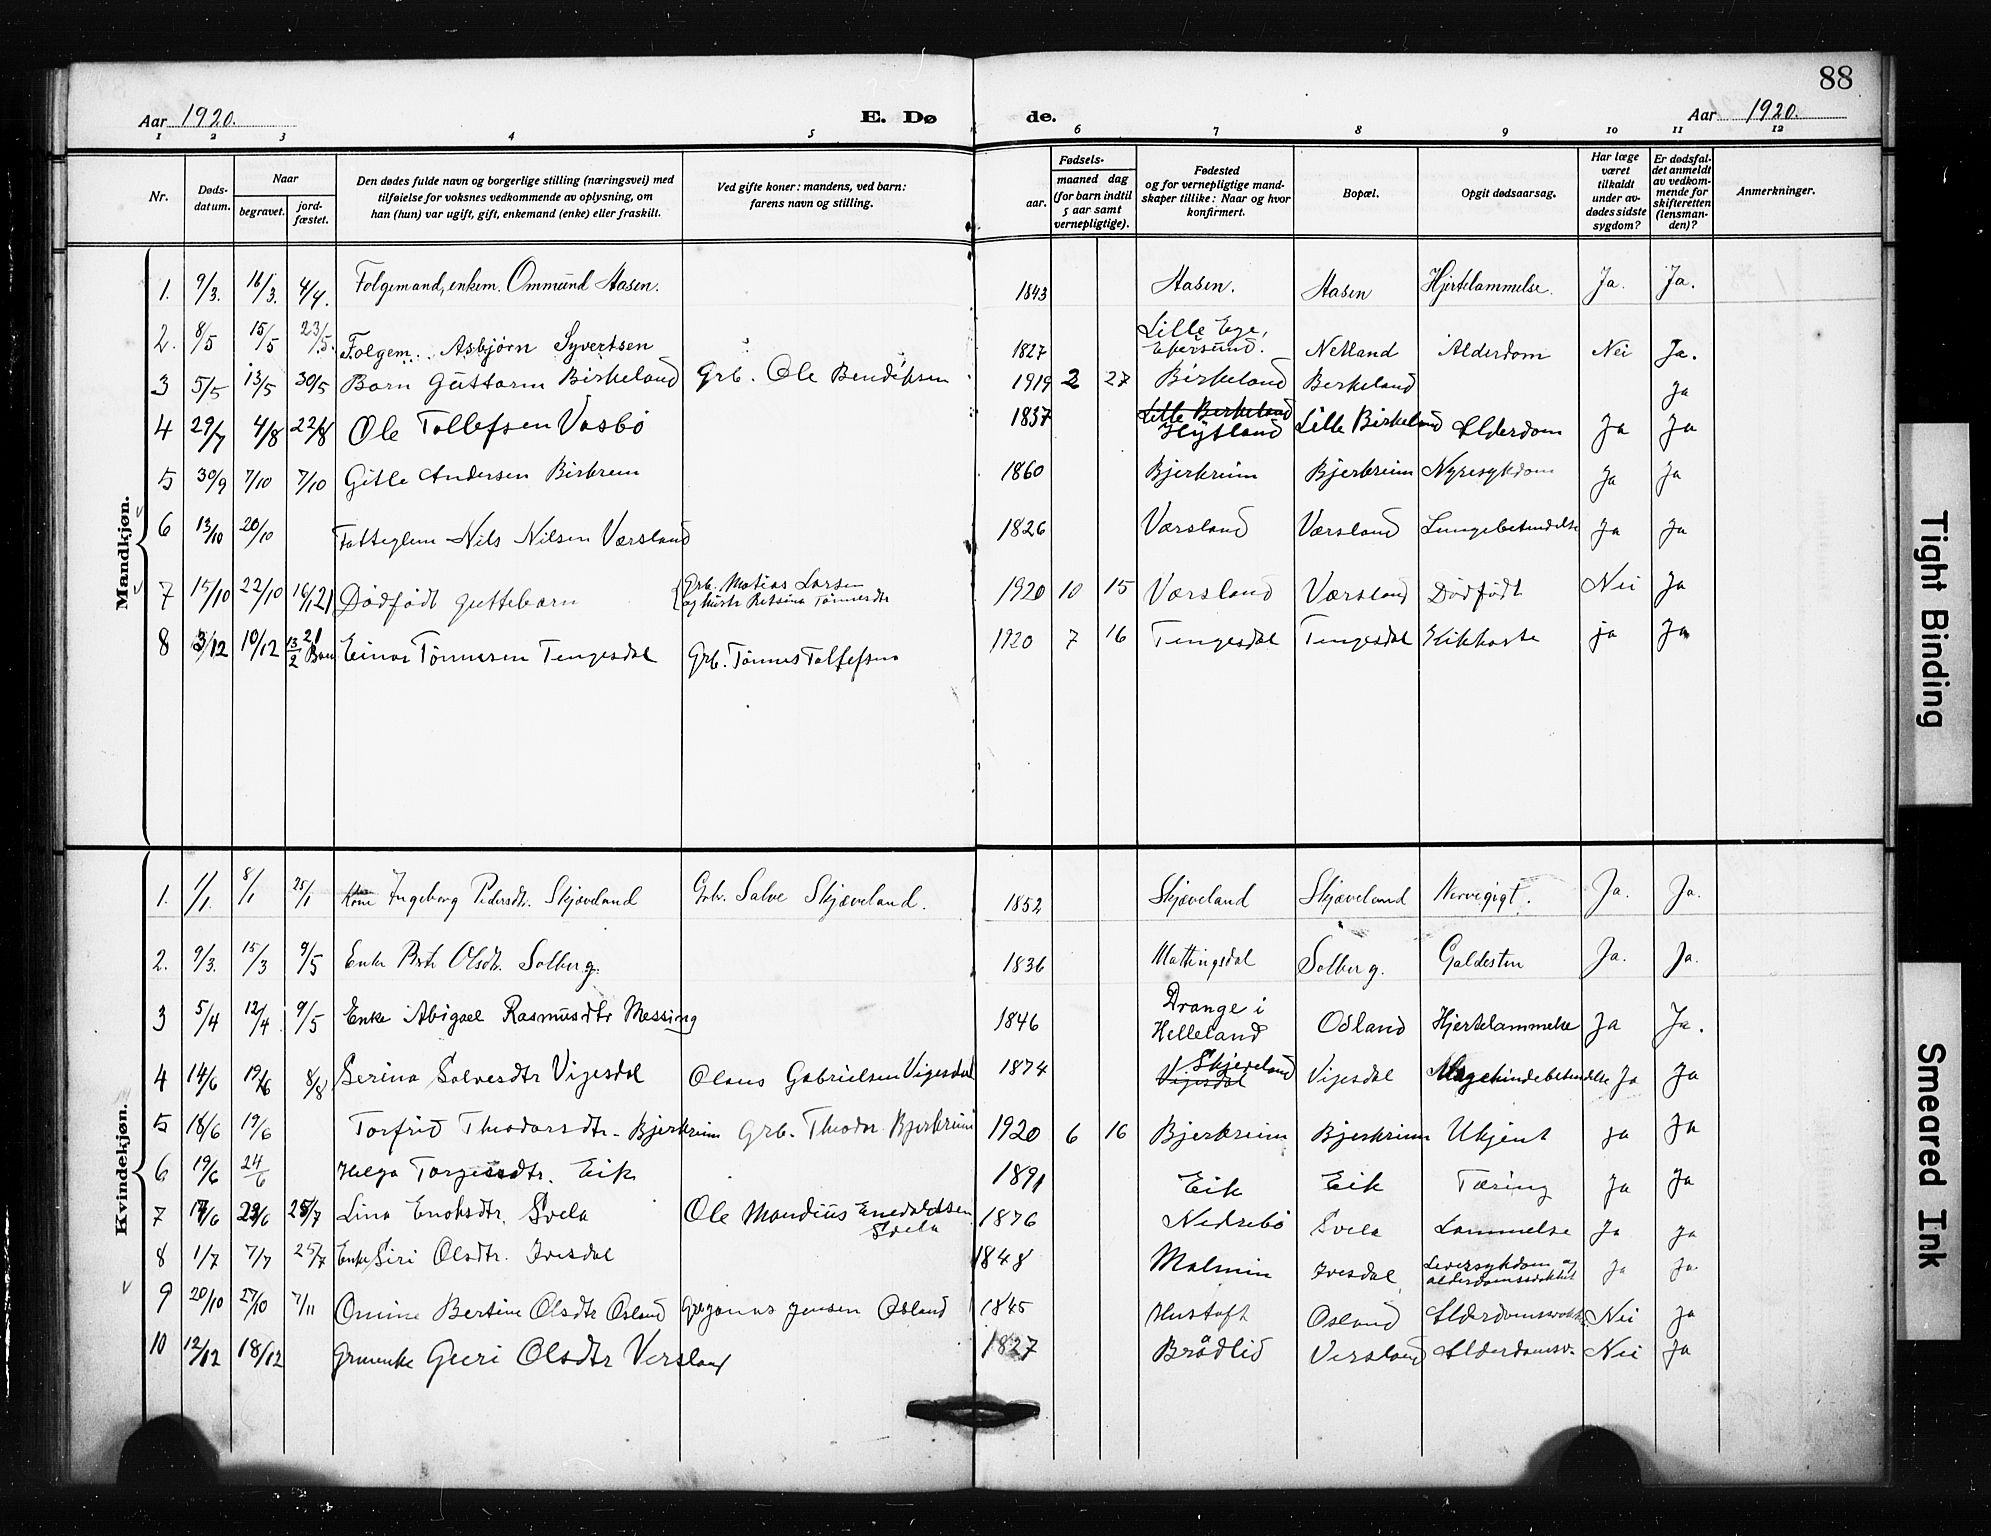 88
Aar 1920. E. Dø de. Aar 1920.
1 2 3 4 5 6 7 8 9 10 11 12
Nr. Døds-datum. Naar begravet. jord-fæstet. Den dødes fulde navn og borgerlige stilling (næringsvei) med tilføielse for voksnes vedkommende av oplysning, om han (hun) var ugift, gift, enkemand (enke) eller fraskilt. Ved gifte koner: mandens, ved barn: farens navn og stilling. Fødsels- aar. maaned dag (for barn indtil 5 aar samt vernepligtige). Fødested og for vernepligtige mand-skaper tillike: Naar og hvor konfirmert. Bopæl. Opgit dødsaarsag. Har læge været tilkaldt under av-dødes sidste sygdom? Er dødsfal-det anmeldt av vedkom-mende for skifteretten (lensman-den)? Anmerkninger.
Mandkjøn.
1. 9/3. 16/3. 4/4. Folgemand, enkem. Ommund Aasen. 1843 Aasen. Aasen Hjertelammelse. Ja. Ja.
2. 8/5 15/5 23/5. Folgem. Asbjørn Syvertsen 1827 Lille Ege, Ekersund. Netland Alderdom Nei Ja.
3 5/5 13/5 30/5 Barn Guttorm Birkeland Grb. Ole Bendiksen 1919 2 27 Birkeland Berkeland Ja
4 29/7 4/8 22/8 Ole Tollefsen Vasbø 1837 Lille Berkeland Hytland Lille Birkeland Alderdom Ja Ja
5 30/9 7/10 7/10 Gitle Andersen Birkrem 1860 Bjerkreim Bjerkreim Nyresykdom Ja Ja
6 13/10 20/10 Fattiglem Nils Nilsen Værsland 1826 Værsland Værsland Lungebetendelse Ja Ja
7 15/10 22/10 16/1 21 Dødfødt guttebarn Grb. Matias Larsen og hustr Betsina Tønnesdtr 1920 10 15 Værsland Værsland Dødfødt Nei Ja
8 3/12 10/12 13/2 21 Einar Tønnesen Tengesdal Grb. Tønnes Tollefsen 1920 7 16 Tengesdal Tengesdal Kikhoste ja Ja
Kvindekjøn.
1. 1/1. 8/1 25/1 Kone Ingeborg Pedersdtr. Skjæveland Grb. Salve Skjæveland. 1852 Skjæveland Skjæveland Nervegigt. Ja. Ja.
2. 9/3. 15/3 9/5 Enke Brt Olsdtr. Solberg. 1836 Mattingsdal Solberg. Galdesten Ja. Ja.
3 5/4 12/4 9/5 Enke Abigael Rasmusdtr Messing 1846 Drange i Helleland Odland Hjertelammelse Ja Ja.
4 14/6 19/6 8/8 Serina Salvesdtr Vigesdal Olaus Gabrielsen Vigesdal 1874 Vigesdal Skjeveland Vigesdal Mageshindebetendelse Ja Ja
5 18/6 19/6 Torfrid Theodorsdtr. Bjerkreim Grb. Theodor Bjerkreim 1920 6 16 Bjerkreim Bjerkreim Ukjent ja Ja
6 19/6 24/6 Helga Torgersdtr. Eik 1891 Eik Eik Tæring Ja Ja
7 17/6 23/6 25/7 Lina Enoksdtr. Svela Ole Mandius Enevaldsen Svela 1876 Nedrebø Svela Lammelse Ja Ja
8 1/7 7/7 25/7 Enke Siri Olsdtr. Ivesdal 1848 Malmin Ivesdal Leversykdom og alderdomssvakhet Ja Ja
9 20/10 27/10 7/11 Omine Bertine Olsdtr Osland Grb Jonas Jensen Osland 1845 Hustoft Osland Alderdomssvakhet Nei Ja
10 12/12 18/12 Grmenke Geeri Olsdtr Versland 1827 Brådlid Versland Alderdomsv. Nei Ja
Tight Binding
Smeared Ink